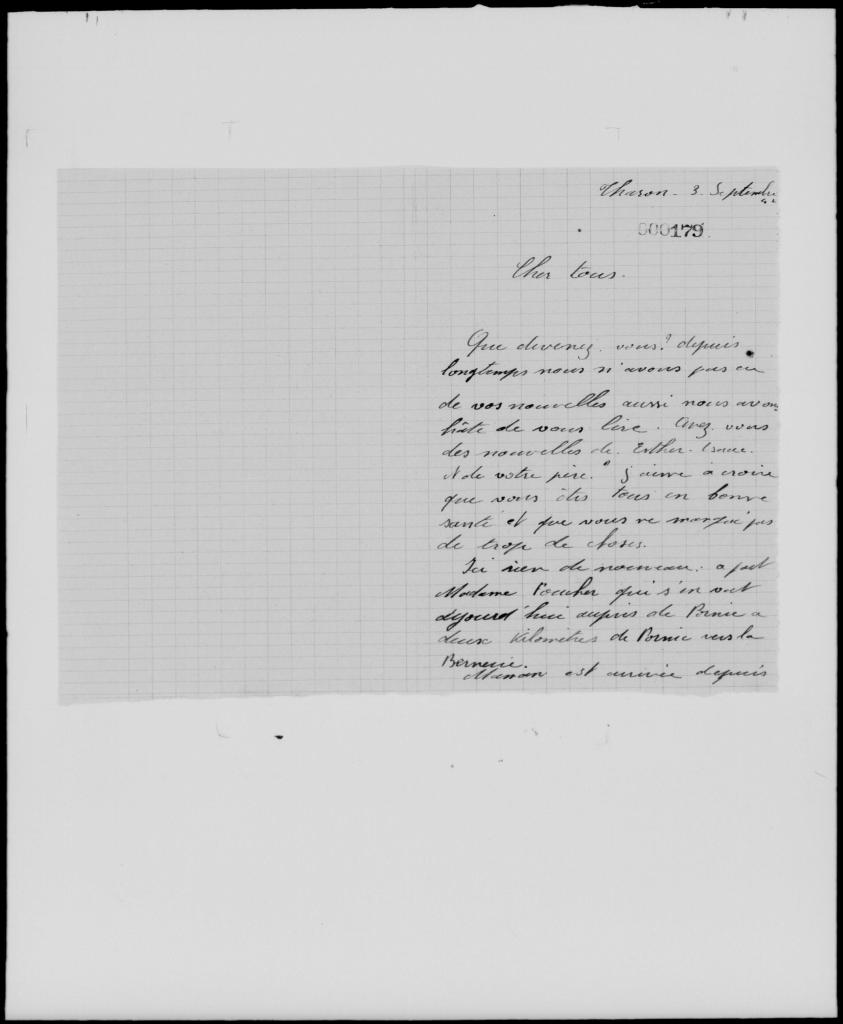 Tharon - 3. Septembre
42
000179
Cher tous.
Que devenez. vous? depuis
longtemps nous n'avons pas eu
de vos nouvelles aussi nous avons
hâte de vous lire. Avez. vous
des nouvelles de. Esther. Isaac.
et de votre père.? j'aime à croire
que vous êtes tous en bonne
santé et que vous ne manqué pas
de trop de choses.
Ici rien de nouveau. a part
Madame qui s'en vat
aujourd'hui auprès de Pornic a
deux kilomètres de Pornic vers la
Bernerie.
Maman est arrivée depuis